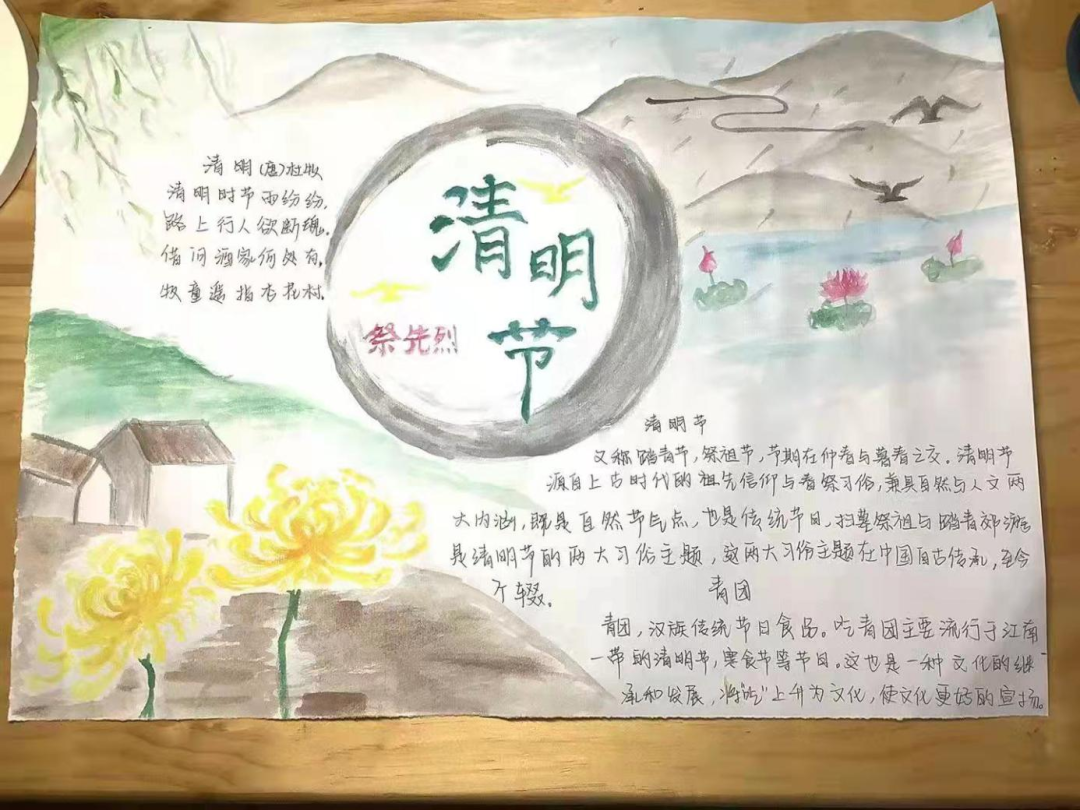 清明(唐)杜牧
清明时节雨纷纷,
路上行人欲断魂。
借问酒家何处有,
牧童遥指杏花村.
清明节
祭先烈
清明节
又称踏青节,祭祖节,节期在仲春与暮春之交.清明节
源自上古时代的祖先信仰与春祭习俗,兼具自然与人文两
大内涵,既是自然节气点,也是传统节日,扫墓祭祖与踏青郊游
是清明节的两大习俗主题,这两大习俗主题在中国自古传承,至今
不辍。
青团
青团,汉族传统节日食品。吃青团主要流行于江南
一带的清明节,寒食节等节日。这也是一种文化的继
承和发展,将"吃"上升为文化,使文化更好的宣扬。